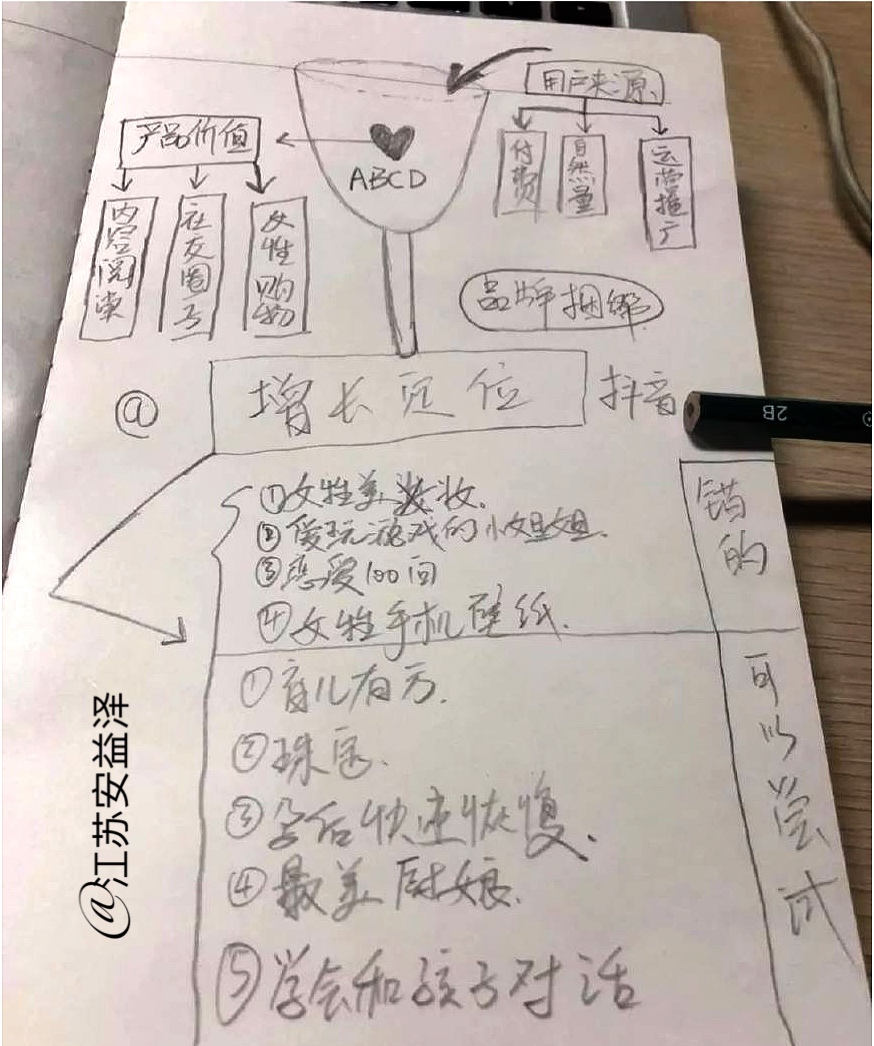 用户来源
产品价值
ABCD
付费
自然量
运营推广
内容阅读
社交圈子
女性购物
品牌捆绑
@
增长定位
抖音
①女性美妆.
②爱玩游戏的小姐姐.
③恋爱100问
④女性手机壁纸.
错的
①育儿有方.
②珠宝.
③孕后快速恢复.
④最美厨娘.
⑤学会和孩子对话
可以尝试
2B
@江苏安益泽